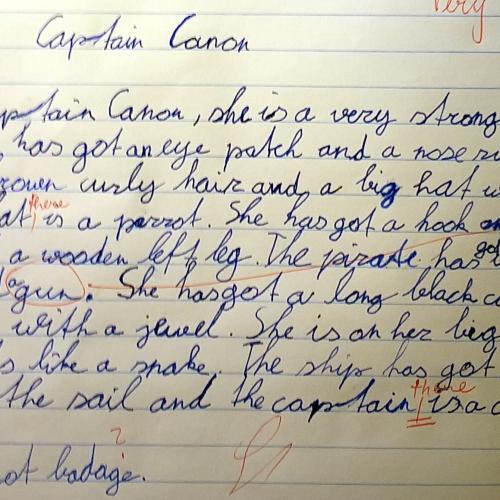 very
Captain Canon
ptain Canon, she is a very strong
has got an eye patch and a nose
rown curly hair and a big hat
at there is a parrot. She has got a hook
a wooden left leg. The pirate has got
gun. She has got a long black
with a jewel. She is on her big
s like a snake. The ship has got
the sail and the captain there is a
?
ot badage.